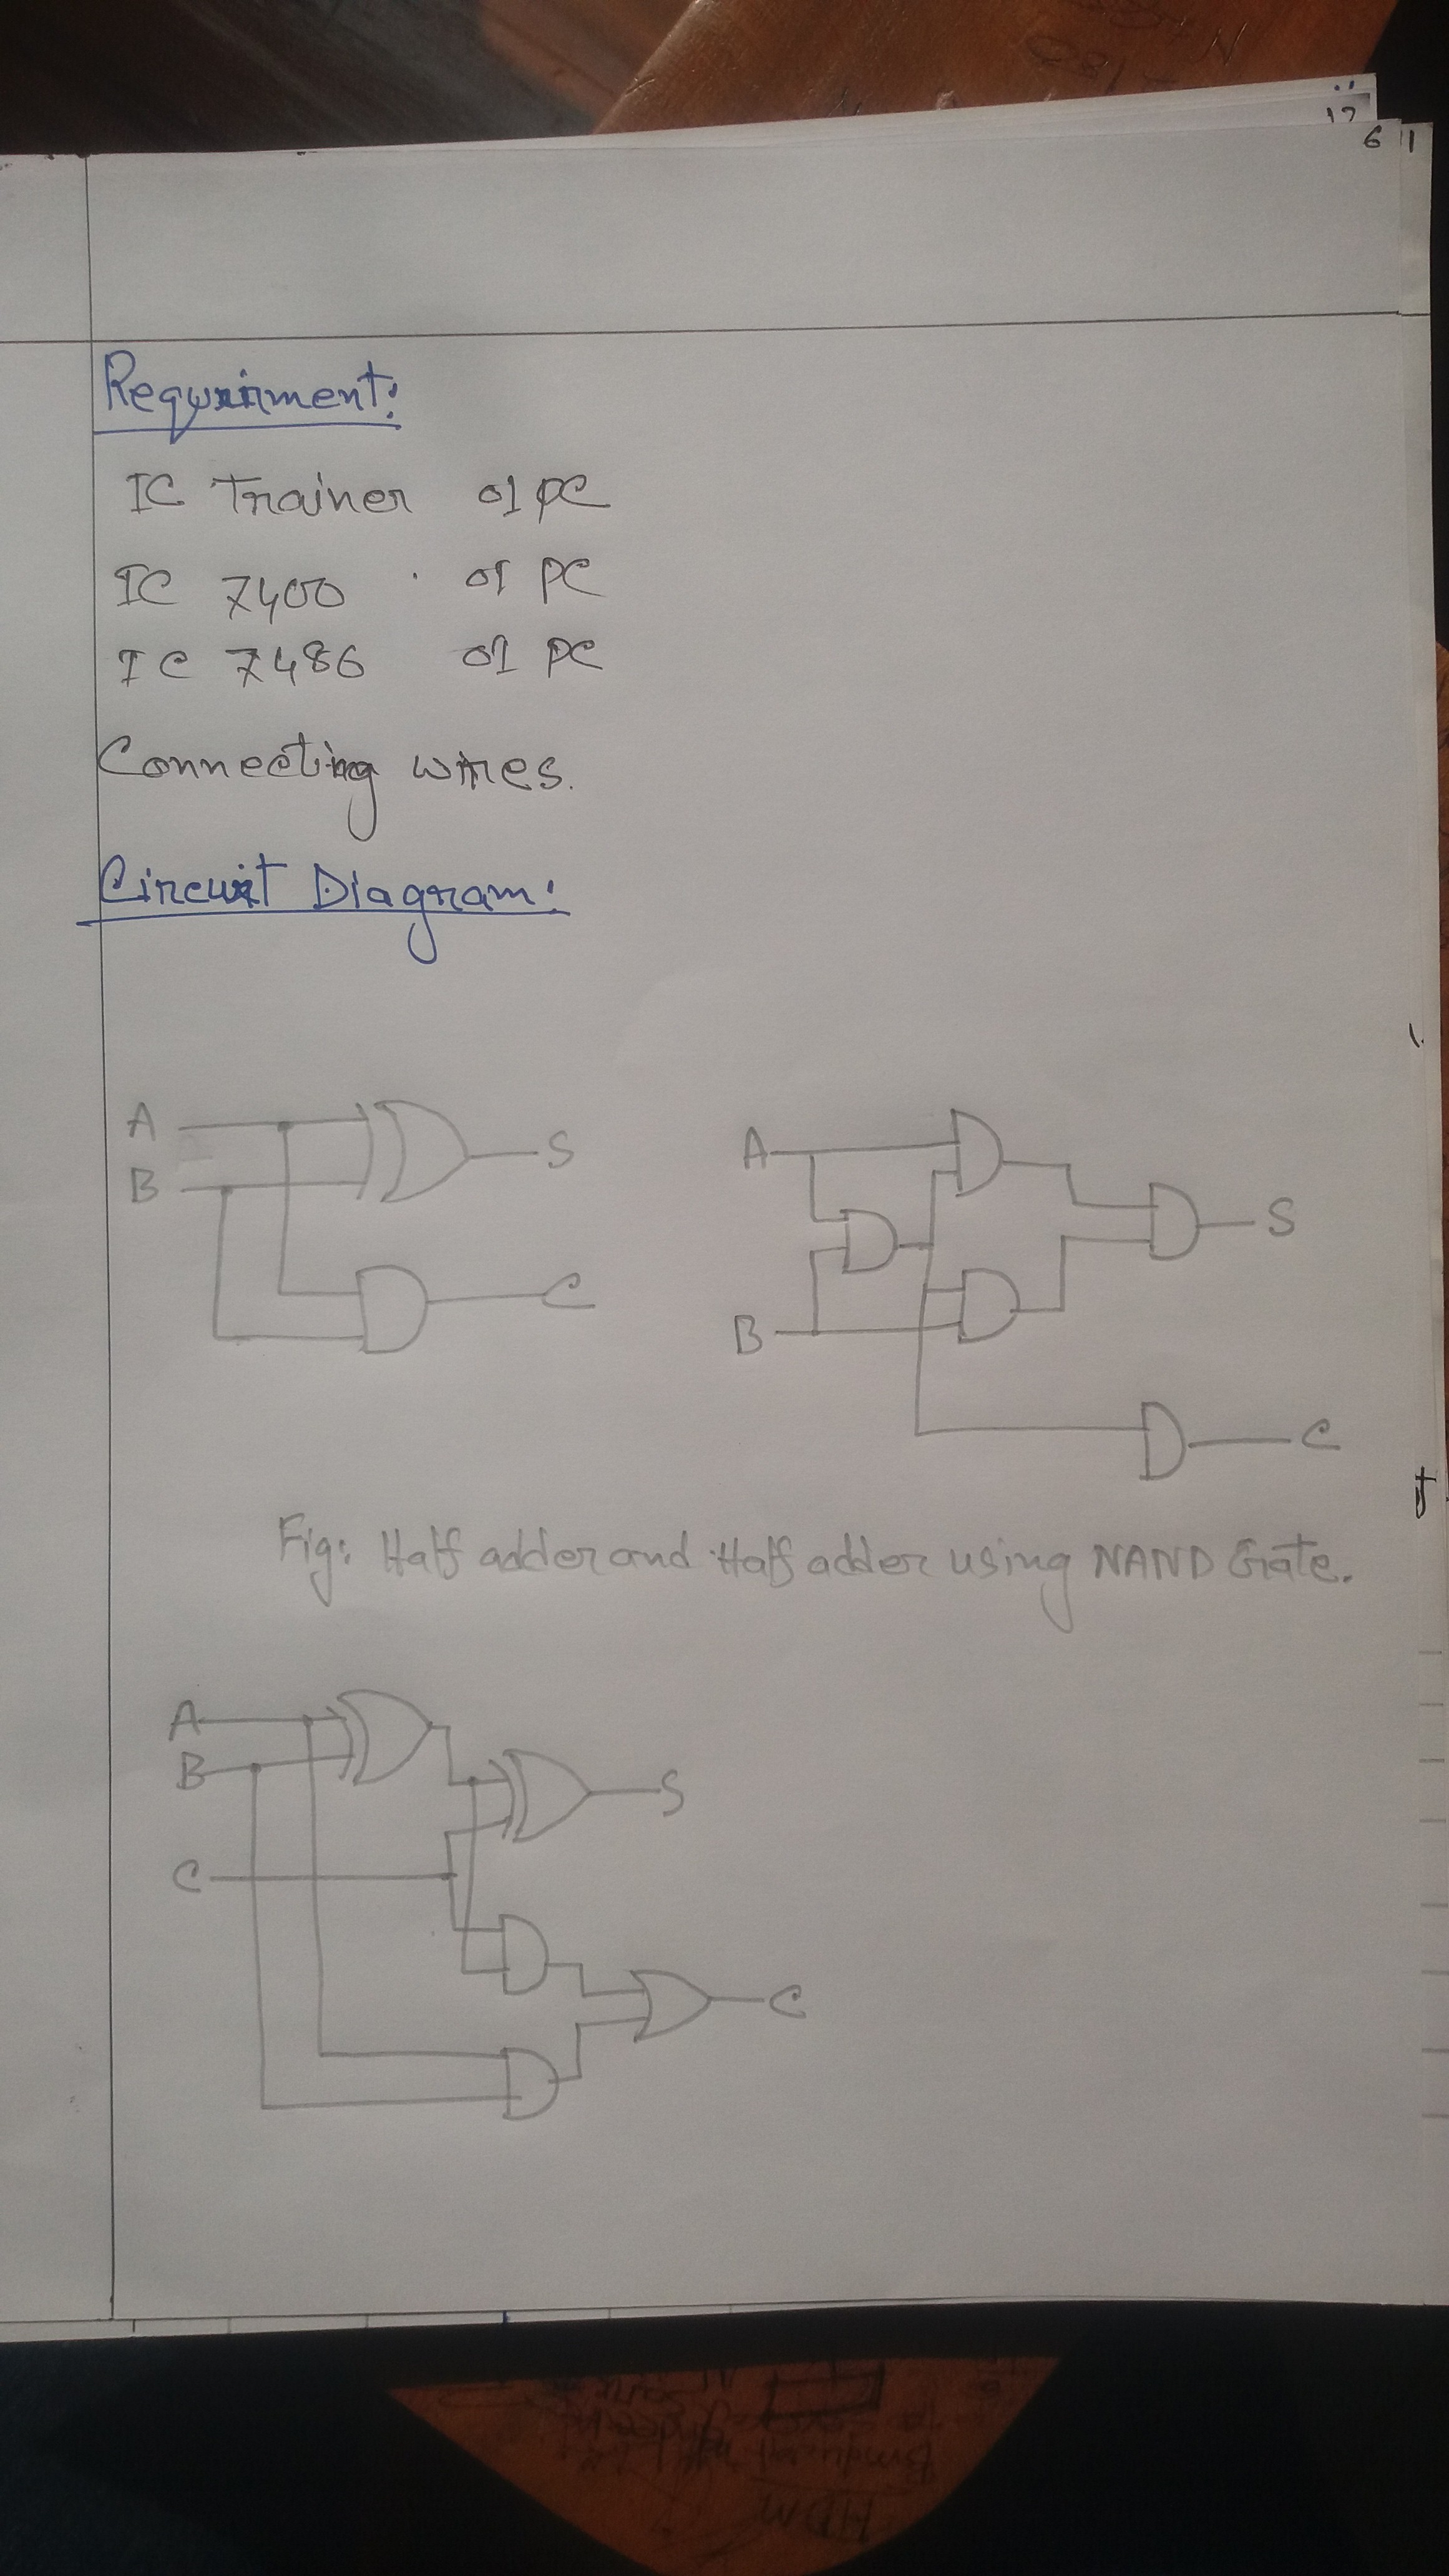 17
6 11
Requirment:
IC Trainer 01 PC
IC 7400 01 PC
IC 7486 01 PC
Connecting wires.
Circuit Diagram:
A
B
S
C
A
B
S
C
Fig: Half adder and Half adder using NAND Gate.
A
B
C
S
C